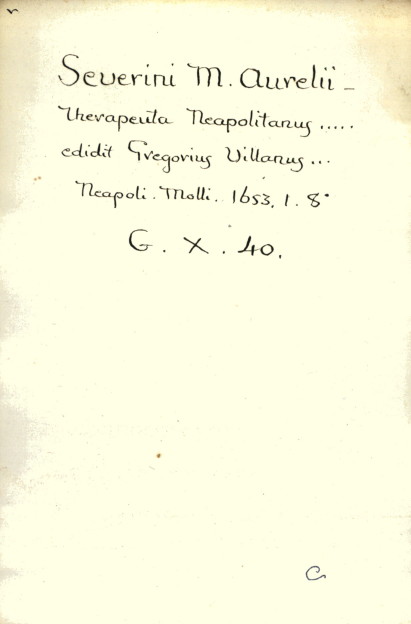 Severini M. Aurelii -
Therapeuta Neapolitanus .....
edidit Gregorius Villanus ...
Neapoli. Molli. 1653. 1. 8°
G. X. 40.
C